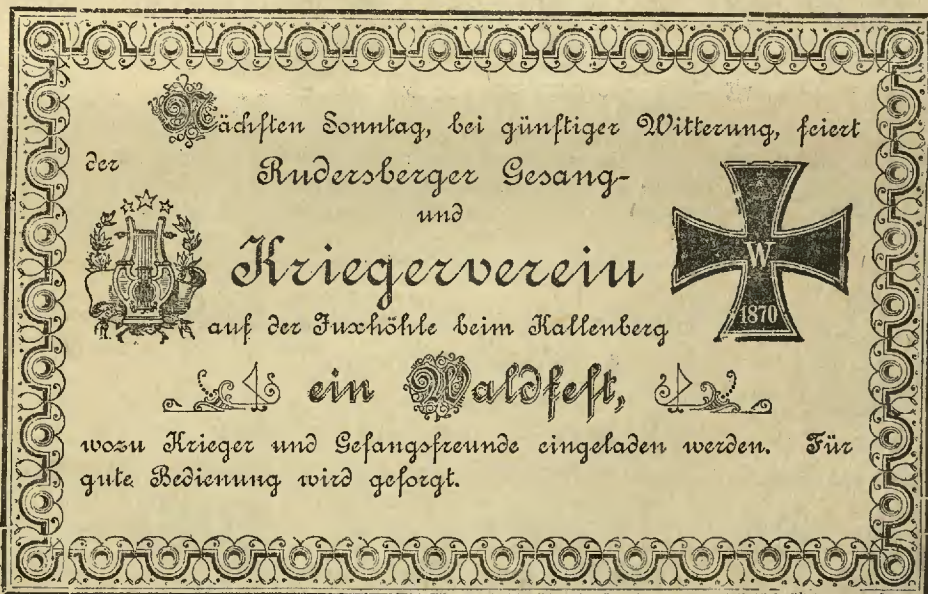 Nächsten Sonntag, bei günstiger Witterung, feiert
der Rudersberger Gesang-
und
Kriegerverein
auf der Fuxhöhle beim Kallenberg
ein Waldfest,
wozu Krieger und Gesangsfreunde eingeladen werden. Für
gute Bedienung wird gesorgt.
W
1870